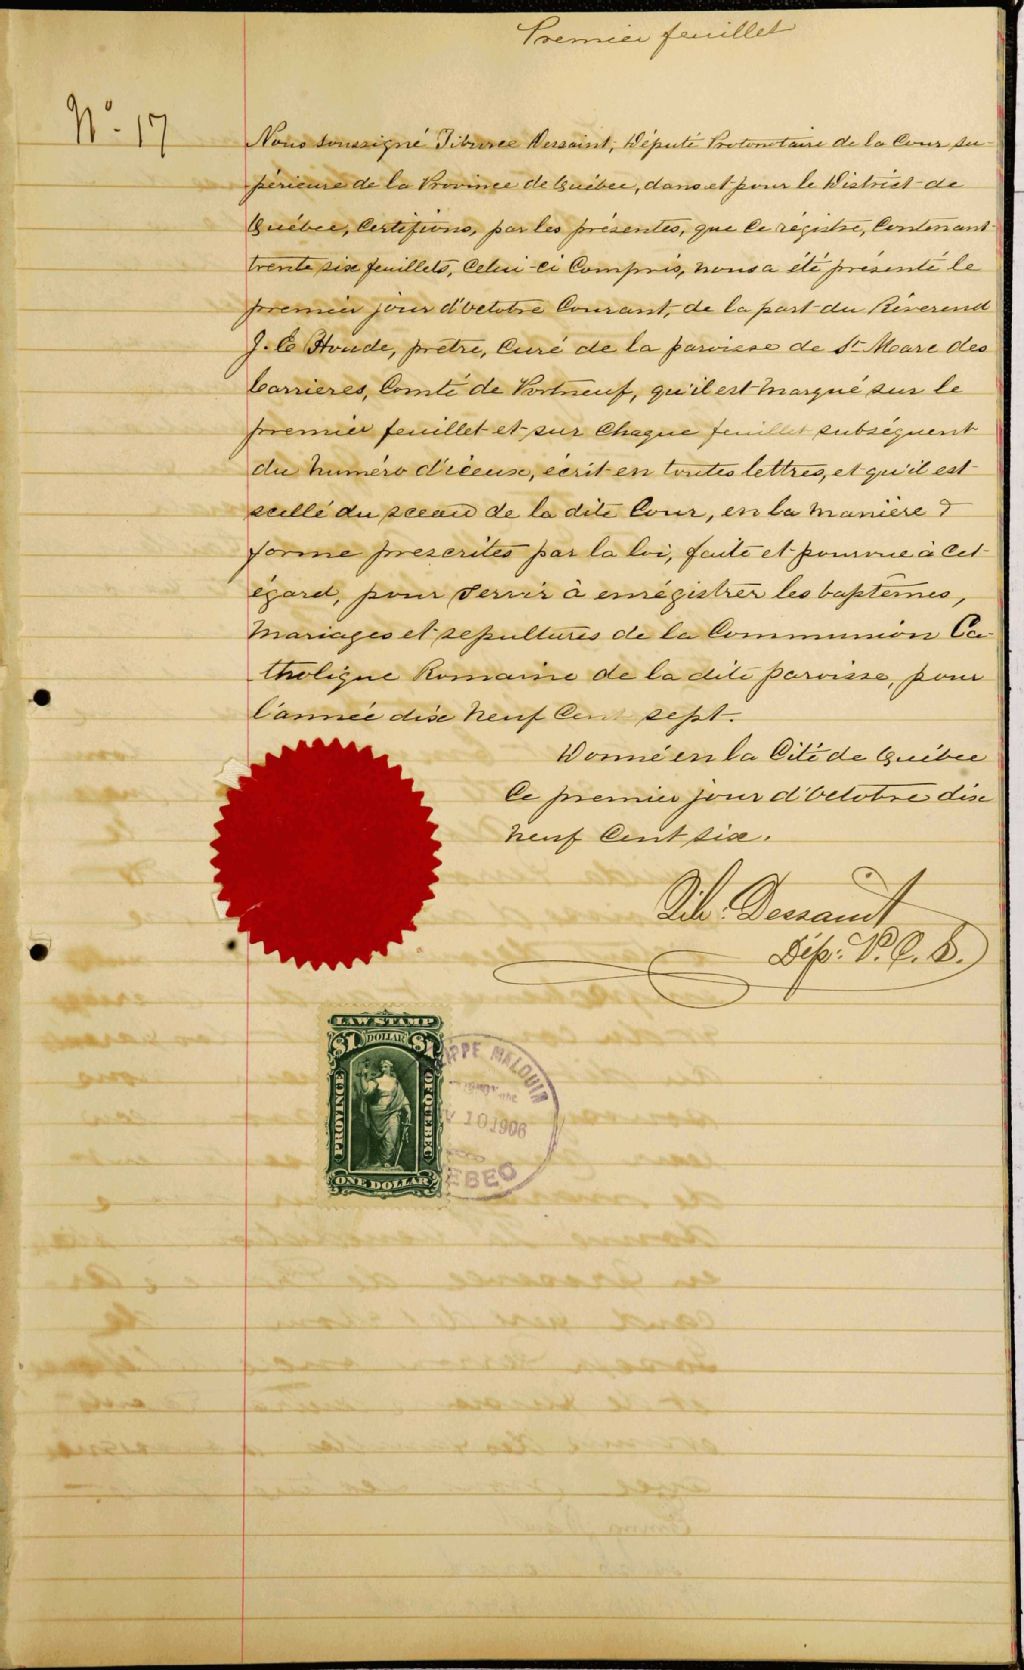 Premier feuillet
No. 17
Nous soussigné Tiburce Dessaint, Député Protonotaire de la Cour Su-
périeure de la Province de Québec, dans et pour le District de
Québec, Certifions, par les présentes, que Ce régistre, Contenant
trente six feuillets, Celui-ci Compris, nous a été présenté le
premier jour d'Octobre Courant, de la part du Révérend
J. E Houde, prêtre, Curé de la paroisse de St Marc des
Carrieres, Comté de Portneuf, qu'il est marqué sur le
premier feuillet et sur Chaque feuillet subséquent
du numéro d'iceux, écrit en toutes lettres, et qu'il est
scellé du sceau de la dite Cour, en la manière &
forme prescrites par la loi, faite et pourvue à Cet
égard, pour servir à enrégistrer les baptêmes,
Mariages et sepultures de la Communion Ca-
tholique Romaine de la dite paroisse, pour
l'année dix neuf Cent sept.
Donné en la Cité de Québec
Ce premier jour d'Octobre dix
neuf Cent six.
Tib: Dessaint
Dép: P. C. S.
LAW STAMP
$1 DOLLAR $1
PROVINCE OF QUEBEC
ONE DOLLAR
IPPE MALOUIN
V 10 1906
EBEC